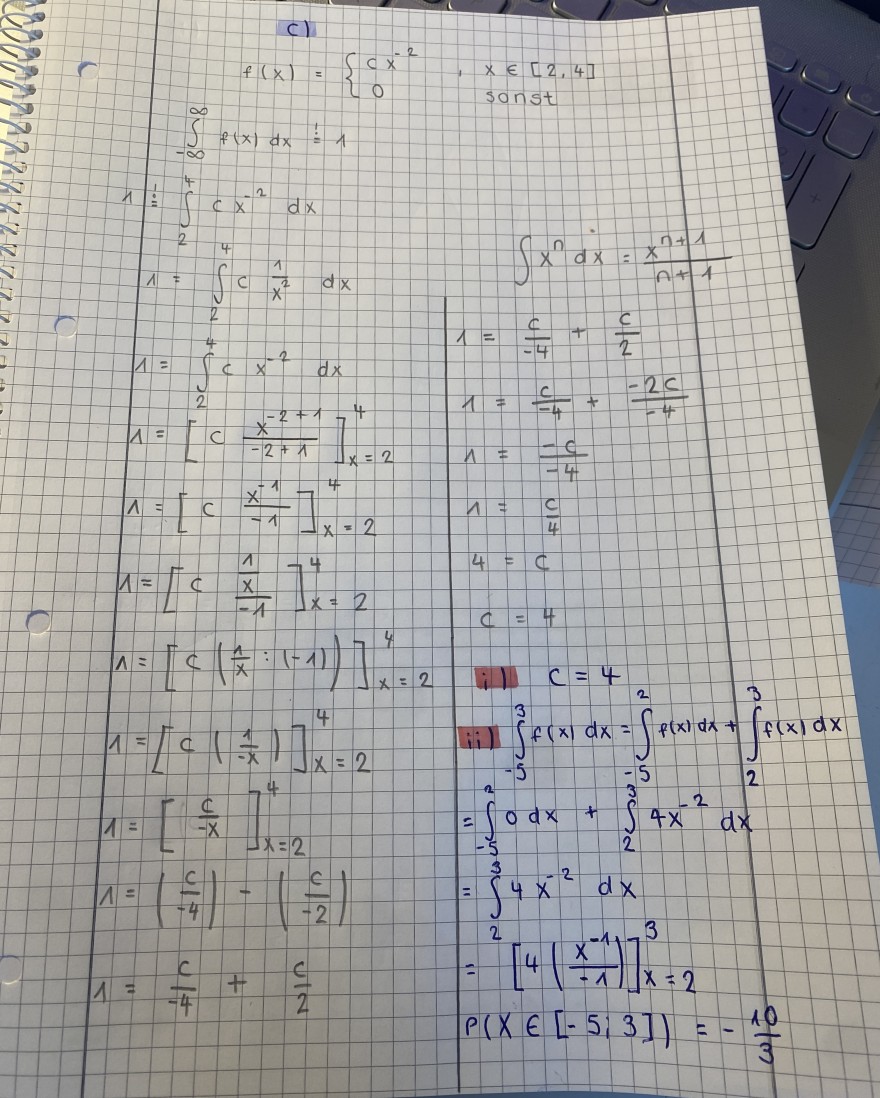 c)
f(x) = { cx⁻² , x ∈ [2,4]
0 sonst
∫_{-∞}^{∞} f(x) dx ≟ 1
1 ≟ ∫_{2}^{4} c x⁻² dx
1 = ∫_{2}^{4} c 1/x² dx
1 = ∫_{2}^{4} c x⁻² dx
1 = [ c x^{-2+1}/(-2+1) ]_{x=2}^{4}
1 = [ c x⁻¹/-1 ]_{x=2}^{4}
1 = [ c (1/x)/-1 ]_{x=2}^{4}
1 = [ c (1/x : (-1)) ]_{x=2}^{4}
1 = [ c (1/-x) ]_{x=2}^{4}
1 = [ c/-x ]_{x=2}^{4}
1 = (c/-4) - (c/-2)
1 = c/-4 + c/2
∫ xⁿ dx = x^{n+1}/(n+1)
1 = c/-4 + c/2
1 = c/-4 + -2c/-4
1 = -c/-4
1 = c/4
4 = c
c = 4
i) c = 4
ii) ∫_{-5}^{3} f(x) dx = ∫_{-5}^{2} f(x) dx + ∫_{2}^{3} f(x) dx
= ∫_{-5}^{2} 0 dx + ∫_{2}^{3} 4x⁻² dx
= ∫_{2}^{3} 4 x⁻² dx
= [4 (x⁻¹/-1)]_{x=2}^{3}
P(X ∈ [-5; 3]) = - 10/3